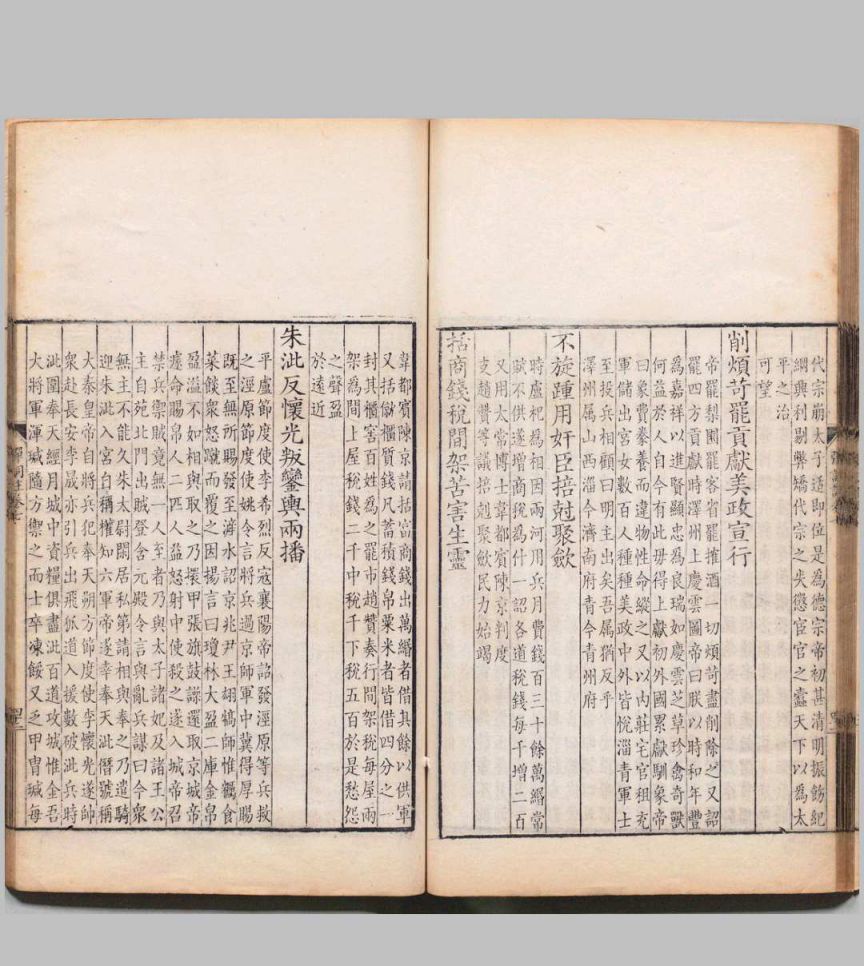 代宗崩太子适即位是為德宗帝初甚清明振飭紀
綱興利剔弊矯代宗之失懲宦官之蠹天下以為太
平之治
可望
削煩苛罷貢獻美政宣行
帝罷梨園罷客省罷搉酒一切煩苛盡削除之又詔
罷四方貢獻時澤州上慶雲圖帝曰朕以時和年豐
為嘉祥以進賢顯忠為良瑞如慶雲芝草珍禽奇獸
何益於人自今有此毋得上獻初外國累獻馴象帝
曰象費豢養而違物性命縱之又以內莊宅官租充
軍儲出宮女數百人種種美政中外皆悅淄青軍士
至投兵相顧曰明主出矣吾属猶反乎
澤州属山西淄今濟南府青今青州府
不旋踵用奸臣掊尅聚歛
時盧杞為相因兩河用兵月費錢百三十餘萬緡常
賦不供遂增商稅為什一詔各道稅錢每千增二百
又用太常博士韋都賓陳京判度
支趙贊等議掊剋聚歛民力始竭
括商錢稅間架苦害生靈
韋都賓陳京請括富商錢出萬緡者借其餘以供軍
又括僦櫃質錢凡蓄積錢帛粟米者皆借四分之一
封其櫃窖百姓為之罷市趙贊奏行間架稅每屋兩
架為間上屋稅錢二千中稅千下稅五百於是愁怨
之聲盈
於遠近
朱泚反懷光叛鑾輿兩播
平盧節度使李希烈反寇襄陽帝詔發涇原等兵救
之涇原節度使姚令言將兵過京師軍中冀得厚賜
既至無所賜發至滻水詔京兆尹王翃犒師惟糲食
菜餤衆怒蹴而覆之因揚言曰瓊林大盈二庫金帛
盈溢不如相與取之乃擐甲張旗鼓譟還取京城帝
遽命賜帛人二匹人益怒射中使殺之遂入城帝召
禁兵禦賊竟無一人至者乃與太子諸妃及諸王公
主自苑北門出賊登含元殿令言與亂兵謀曰今衆
無主不能久朱太尉閒居私第請相與奉之乃遣騎
迎朱泚入宮自稱權知六軍帝遂幸奉天泚僭號稱
大秦皇帝自將兵犯奉天朔方節度使李懷光遂帥
衆赴長安李晟亦引兵出飛狐道入援數破泚兵時
泚圍奉天經月城中資糧俱盡泚百道攻城惟金吾
大將軍渾瑊隨方禦之而士卒凍餒又乏甲冑瑊每